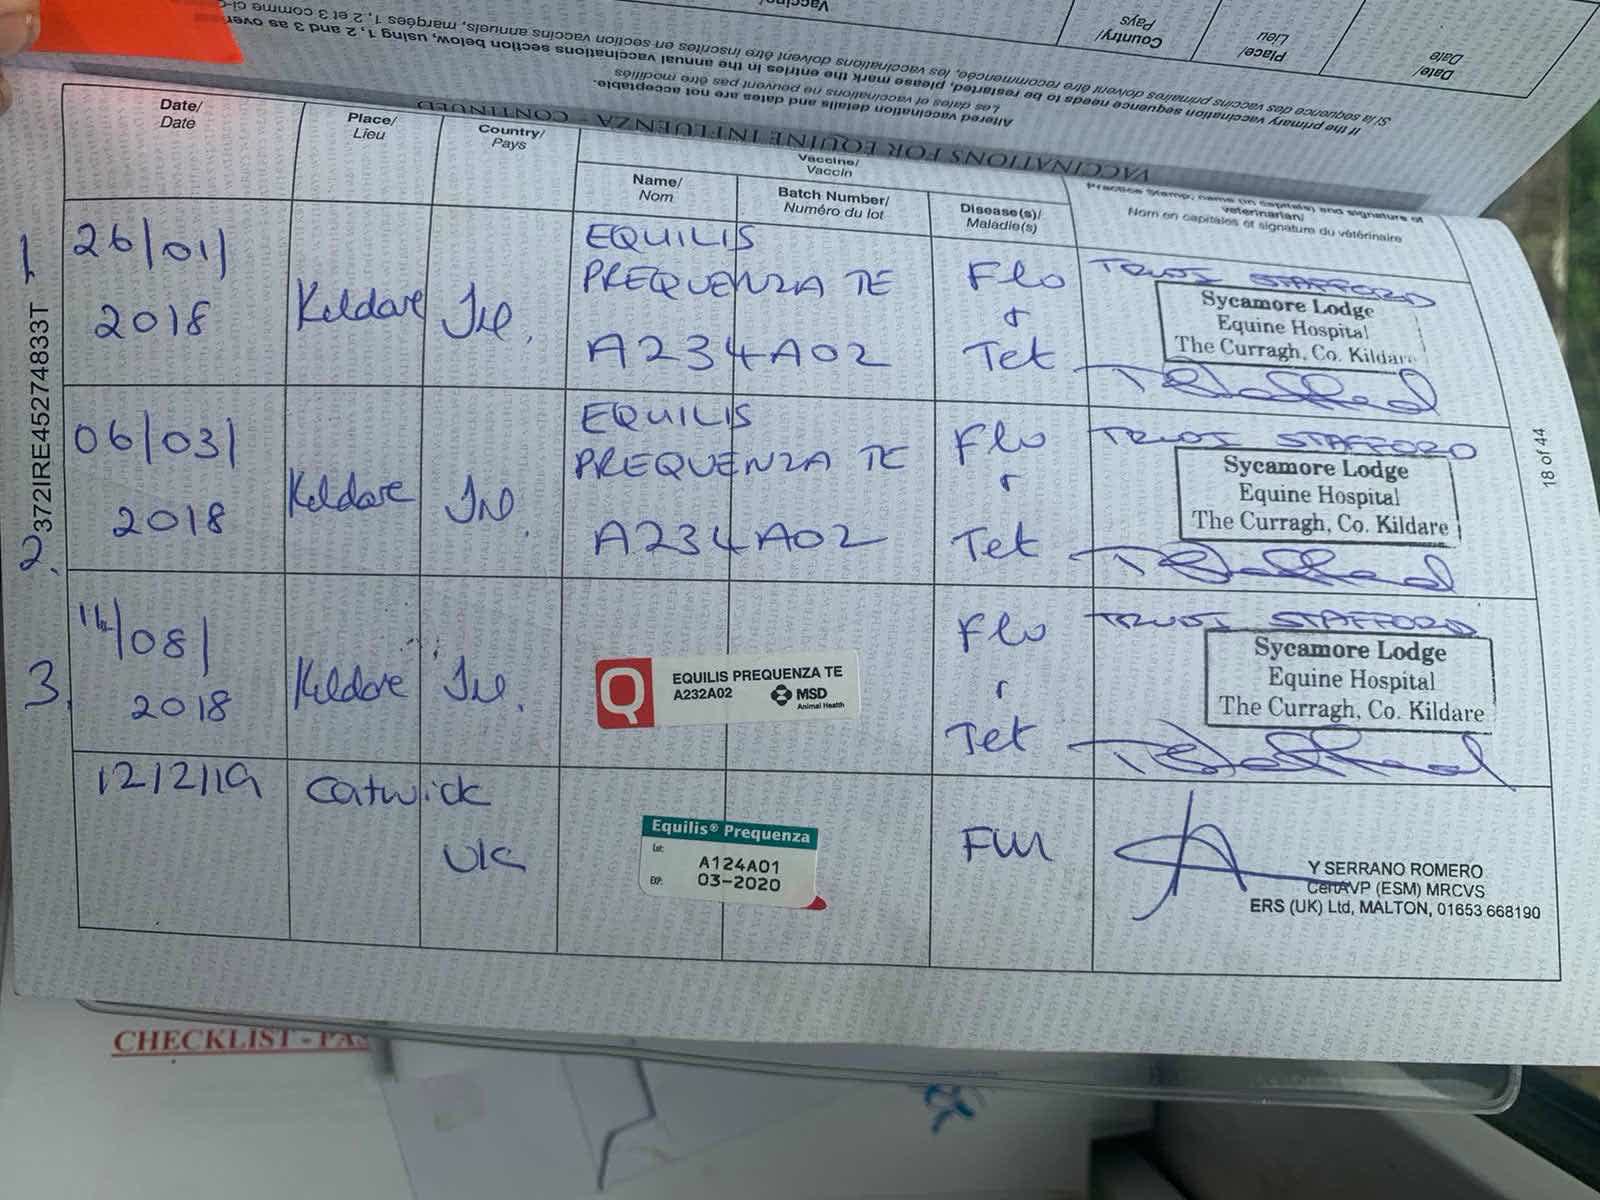 Si la séquence des vaccins primaires doivent être recommencée, les vaccinations doivent être inscrites en section vaccins annuels, marquées 1, 2 et 3 comme
If the primary vaccination sequence needs to be restarted, please mark the entries in the annual vaccinations section below, using 1, 2 and 3 as over
Les dates et vaccinations ne peuvent pas être modifiés
Altered vaccination details and dates are not acceptable.
Date/
Date
Place/
Lieu
Country/
Pays
VACCINATIONS FOR EQUINE INFLUENZA - CONTINUED
Date/
Date
Place/
Lieu
Country/
Pays
Vaccine/
Vaccin
Name/
Nom
Batch Number/
Numéro du lot
Disease(s)/
Maladie(s)
Practice Stamp, name (in capitals) and signature of
veterinarian/
Nom en capitales et signature du vétérinaire
372IRE45274833T
18 of 44
1
26/01/
2018
Kildare
Irl.
EQUILIS
PREQUENZA TE
A234A02
Flu
&
Tet
STAFFORD
Sycamore Lodge
Equine Hospital
The Curragh, Co. Kildare
2.
06/03/
2018
Kildare
Irl.
EQUILIS
PREQUENZA TE
A234A02
Flu
&
Tet
STAFFORD
Sycamore Lodge
Equine Hospital
The Curragh, Co. Kildare
3.
/08/
2018
Kildare
Irl.
Q
EQUILIS PREQUENZA TE
A232A02
MSD
Animal Health
Flu
&
Tet
STAFFORD
Sycamore Lodge
Equine Hospital
The Curragh, Co. Kildare
12/2/19
Gatwick
UK
Equilis® Prequenza
Lot:
A124A01
EXP:
03-2020
Flu
Y SERRANO ROMERO
CertAVP (ESM) MRCVS
ERS (UK) Ltd, MALTON, 01653 668190
CHECKLIST - PAS